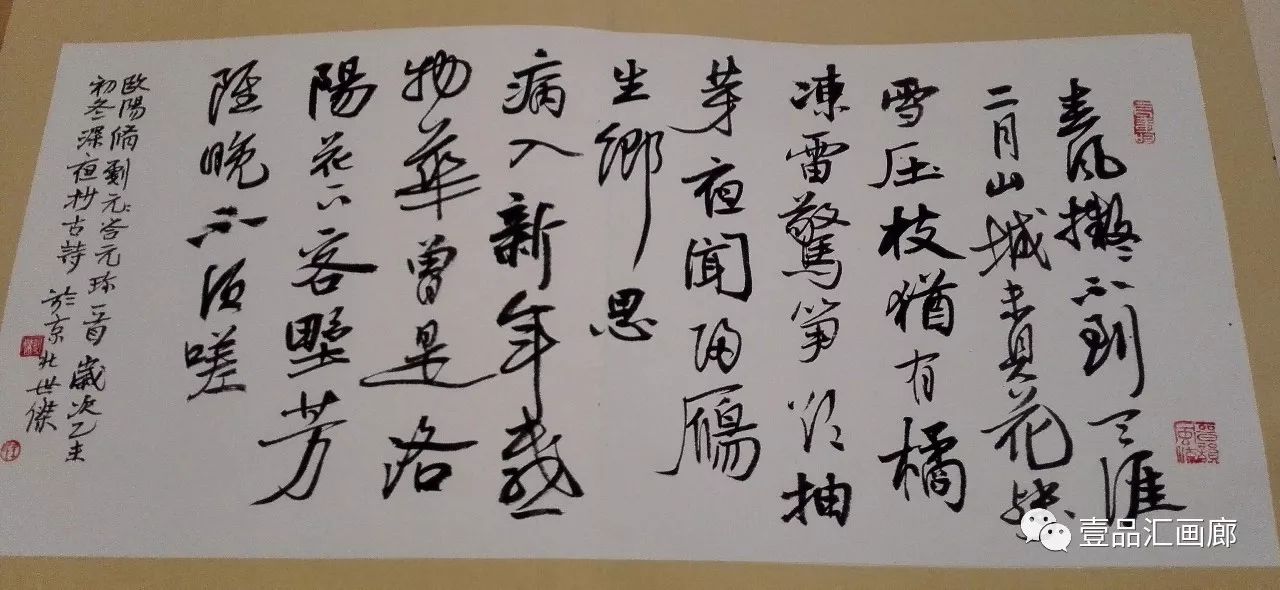 春風擬不到天涯
二月山城未見花殘
雪压枝猶有橘
凍雷驚笋欲抽
芽夜聞歸鴈
生鄉思
病入新年感
物華曾是洛
陽花下客墅芳
雖晚不須嗟
歐陽脩戲元答元珍一首 歲次乙未
初冬深夜抄古詩於京北世傑
壹品汇画廊